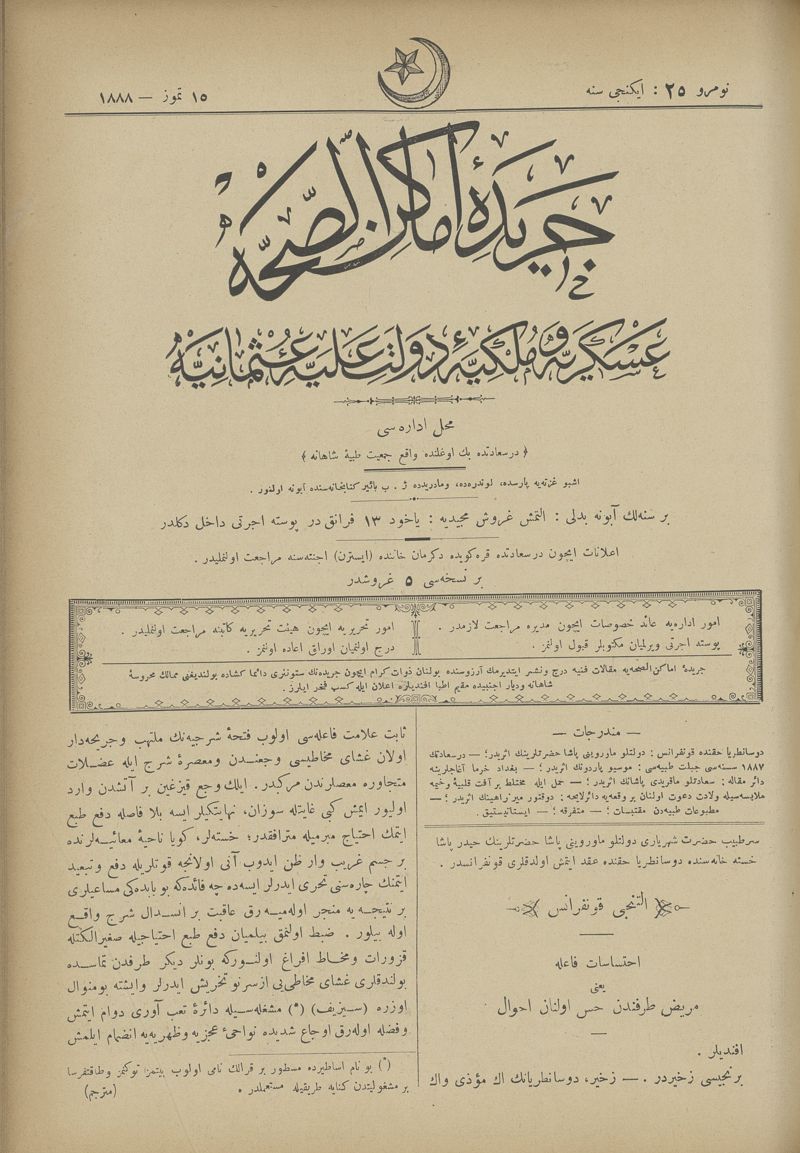 نومرو ٢٥ : ایكنجی سنه
١٥ تموز — ١٨٨٨
جریدهٔ اماكن الصحّه
عسكریه و ملكیهٔ دولت علیهٔ عثمانیه
محل اداره سی
﴿ درسعادتده بك اوغلنده واقع جمعیت طبیهٔ شاهانه ﴾
اشبو غزته یه پارسده، لوندره ده، ومادریدده ژ . ب بائیر كتابخانه سنده آبونه اولنور .
بر سنه لك آبونه بدلی : التمش غروش مجیدیه : یاخود ١٣ فرانق در پوسته اجرتی داخل دكلدر
اعلانات ایچون درسعادتده قره كویده دكرمان خاننده (ایسترن) اجنته سنه مراجعت اولنملیدر .
بر نسخه سی ٥ غروشدر
امور اداره یه عائد خصوصات ایچون مدیره مراجعت لازمدر .
پوسته اجرتی ویرلمیان مكتوبلر قبول اولنمز .
امور تحریریه ایچون هیئت تحریریه كاتبنه مراجعت اولنملیدر .
درج اولنمیان اوراق اعاده اولنمز .
جریدهٔ اماكن الصحه یه مقالات فنیه درج ونشر ایتدیرمك آرزوسنده بولنان ذوات كرام ایچون جریده نك ستونلری دائما كشاده بولندیغنی ممالك محروسهٔ
شاهانه ودیار اجنبیده مقیم اطبا افندیلره اعلان ایله كسب فخر ایلرز .
— مندرجات —
دوسانطریا حقنده قونفرانس : دولتلو ماوروینی پاشا حضرتلرینك اثریدر؛ — درسعادتك
١٨٨٧ سنه سی جبلت طبیعه سی : موسیو پاردونك اثریدر؛ — بغداد خرما آغاجلرینه
دائر مقاله : سعادتلو ماقریدی پاشانك اثریدر؛ — حمل ایله مختلط بر آفت قلبیهٔ وخیمه
ملابسه سیله ولادت دعوت اولنان بر وقعه یه دائر لایحه : دوقتور میززاهینك اثریدر؛ —
مطبوعات طبیه دن مقتبسات؛ — متفرقه؛ — ایستاتیستیق .
سرطبیب حضرت شهریاری دولتلو ماوروینی پاشا حضرتلرینك حیدر پاشا
خسته خانه سنده دوسانطریا حقنده عقد ایتمش اولدقلری قونفرانسدر .
التنجی قونفرانس
احتساسات فاعله
یعنی
مریض طرفندن حس اولنان احوال
افندیلر .
برنجیسی زخیردر . — زخیر، دوسانطریانك اك مؤذی واك
ثابت علامت فاعله سی اولوب فتحهٔ شرجیه نك ملتهب وجریحه دار
اولان غشای مخاطیسی وجعندن ومعصرهٔ شرج ایله عضلات
متجاوره معصارندن مركبدر . ایلك وجع قیزغین بر آتشدن وارد
اولیور ایمش كبی غایتله سوزان، نهایتكیلر ایسه بلا فاصله دفع طبع
ایتمك احتیاج مبرمیله مترافقدر؛ خسته لر، كویا ناحیهٔ معائیه لرنده
بر جسم غریب وار ظن ایدوب آنی اولانجه قوتلریله دفع وتبعید
ایتمنك چاره سنی تحری ایدرلر ایسه ده چه فائده كه بو بابده كی مساعیلری
بر نتیجه یه منجر اوله میه رق عاقبت بر انسدال شرج واقع
اوله بیلور . ضبط اولنمق بیلمیان دفع طبع احتیاجیله صغیر الكتله
قزورات ومخاط افراغ اولنوركه بونلر دیكر طرفدن تماسده
بولندقلری غشای مخاطی یی ازسرنو تخریش ایدرلر وایشته بومنوال
اوزره (سیزیف) (*) مشغله سیله دائرهٔ تعب آوری دوام ایتمش
وفضله اوله رق اوجاع شدیده نواحیٔ عجزیه وظهریه یه انضمام ایلمش
(*) بو نام اساطیرده مسطور بر قرالك نامی اولوب بیتمز توكنمز وطاقتفرسا
بر مشغولیتدن كنایه طریقیله مستعملدر .
(مترجم)